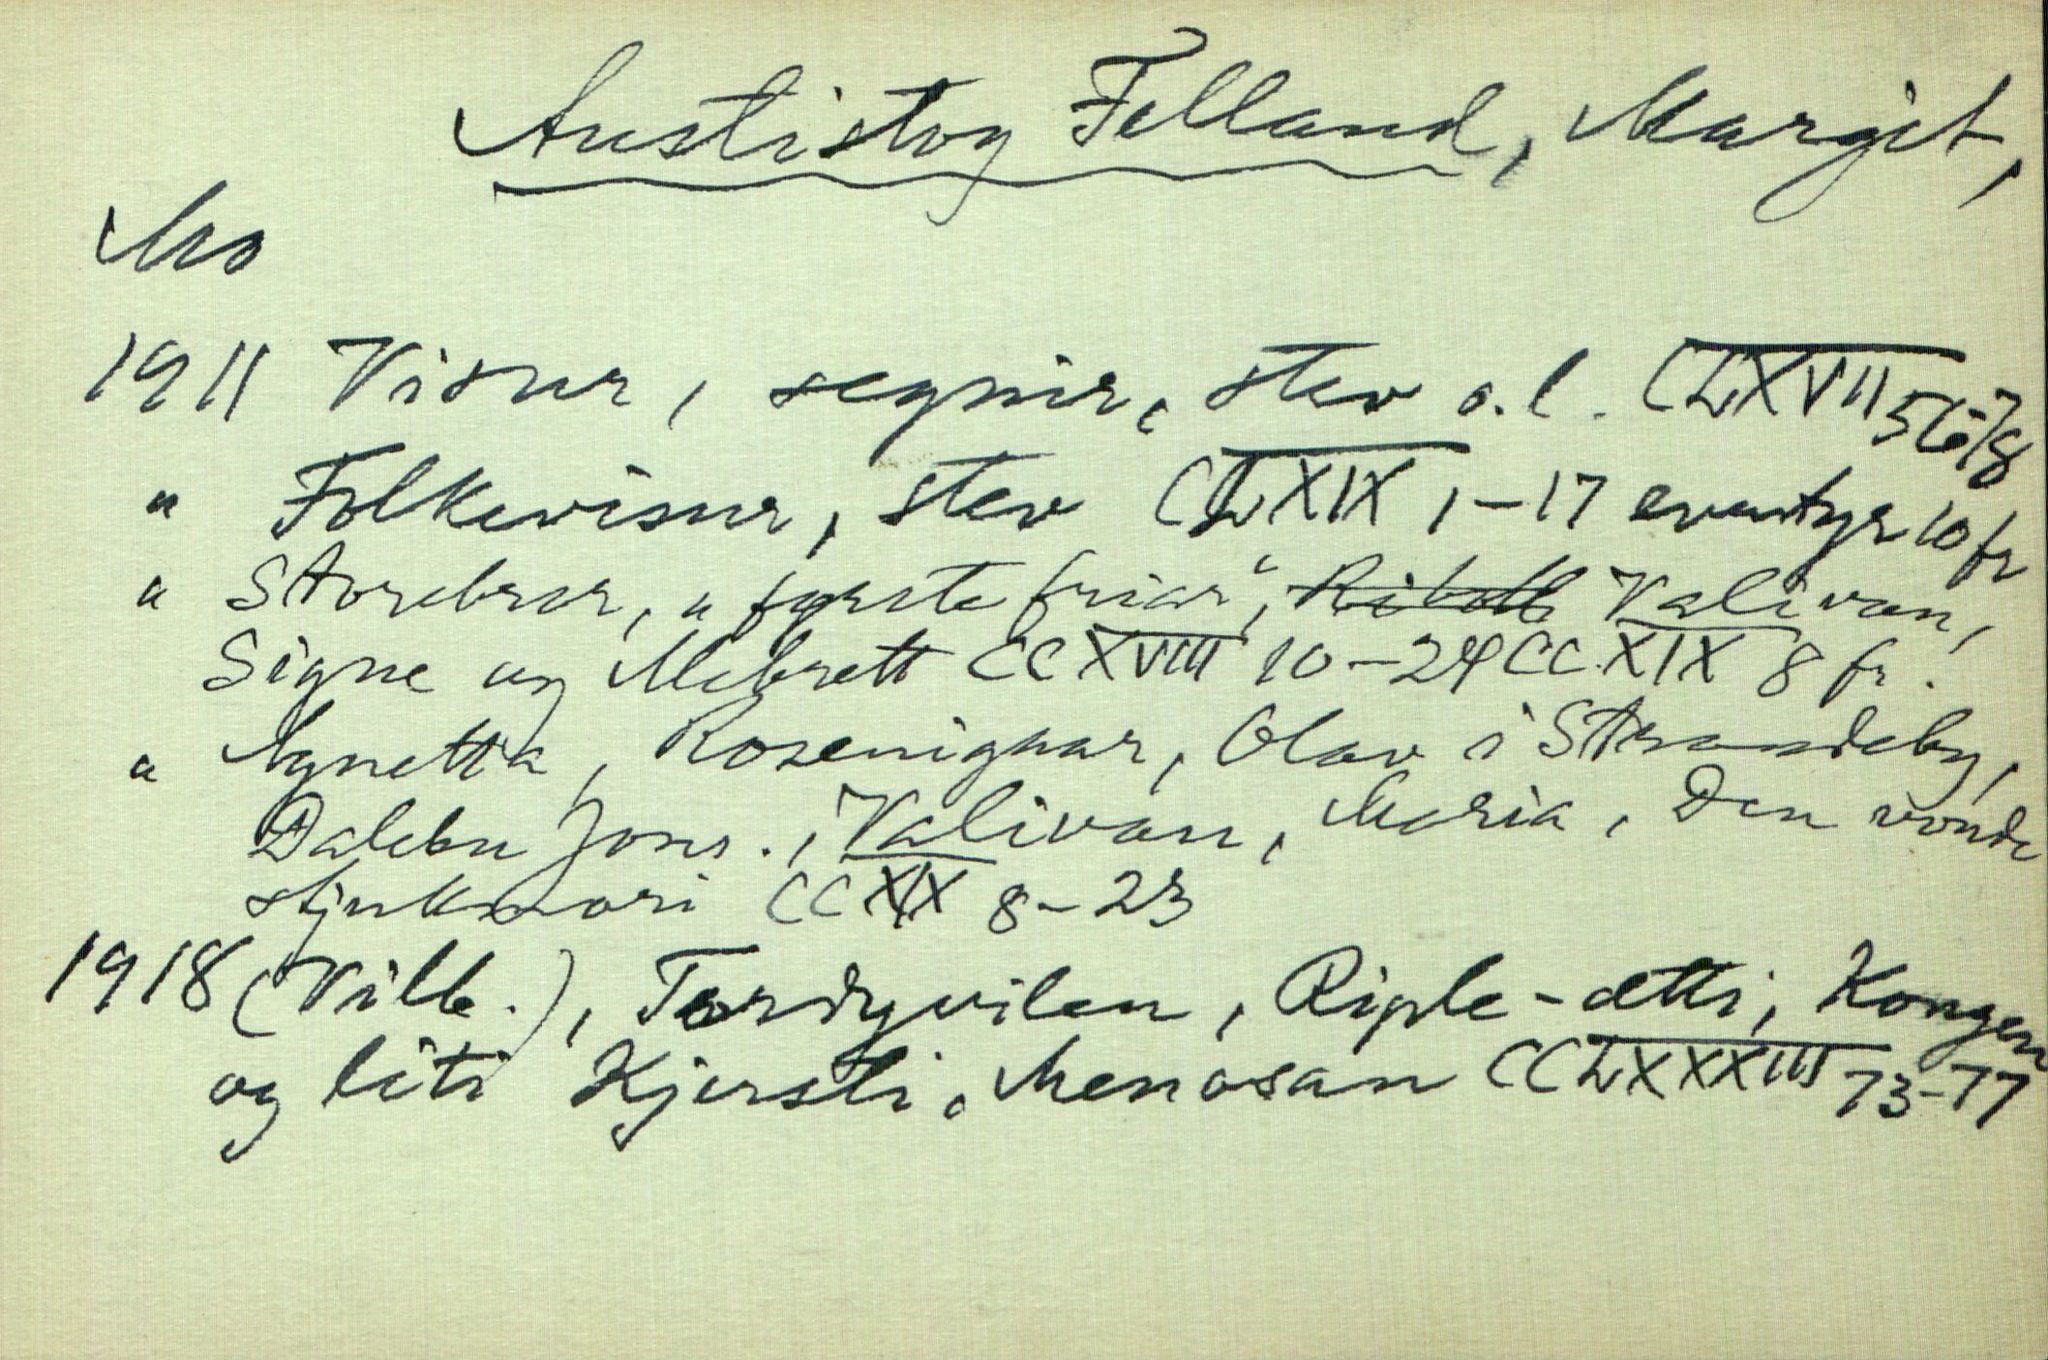 Austistog Felland, Margit,
Mo
1911 Visur, segnir, stev o.l. CLXVII 56-78
" Folkevisur, stev CLXIX 1-17 eventyr 10 fr
" Storebror, "fyrste friar", Valivan,
Signe og Mebrett CCXVIII 10-24 CCXIX 8 fr.
" Agnetta, Rosenigvar, Olav i Strondeby,
Dalebu Jons., Valivan, Maria, Den vonde
stjukmori CCXIX 8-23
1918 (Vilb.), Tordyvilen, Riple-ætti, Kongen
og liti Kjersti, Menosan CCLXXXIII 73-77